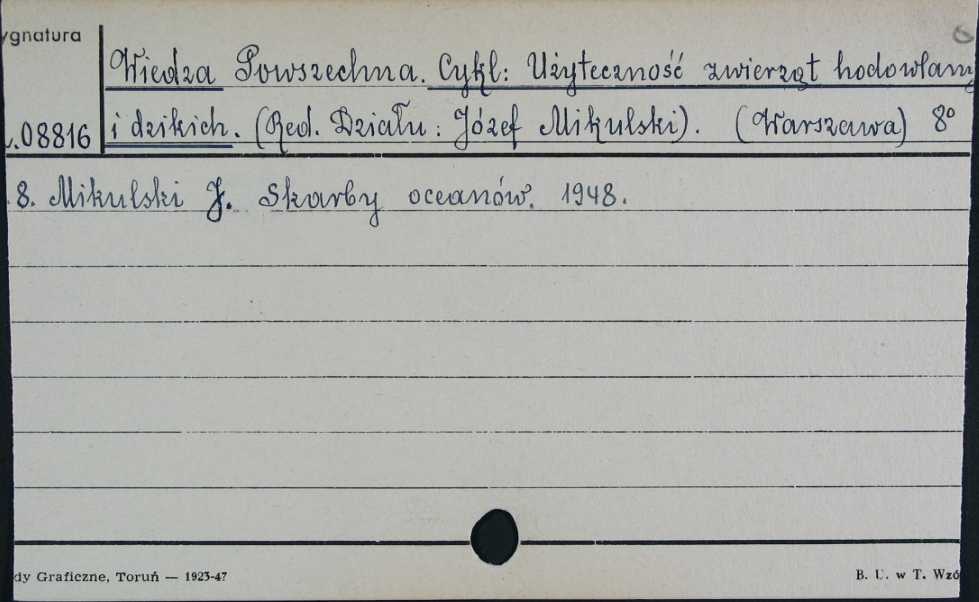 ygnatura
Wiedza Powszechna. Cykl: Użyteczność zwierząt hodowlany
08816 i dzikich. (Red. Działu: Józef Mikulski). (Warszawa) 8°
8. Mikulski J. Skarby oceanów. 1948.
dy Graficzne, Toruń — 1923-47
B. U. w T. Wzó